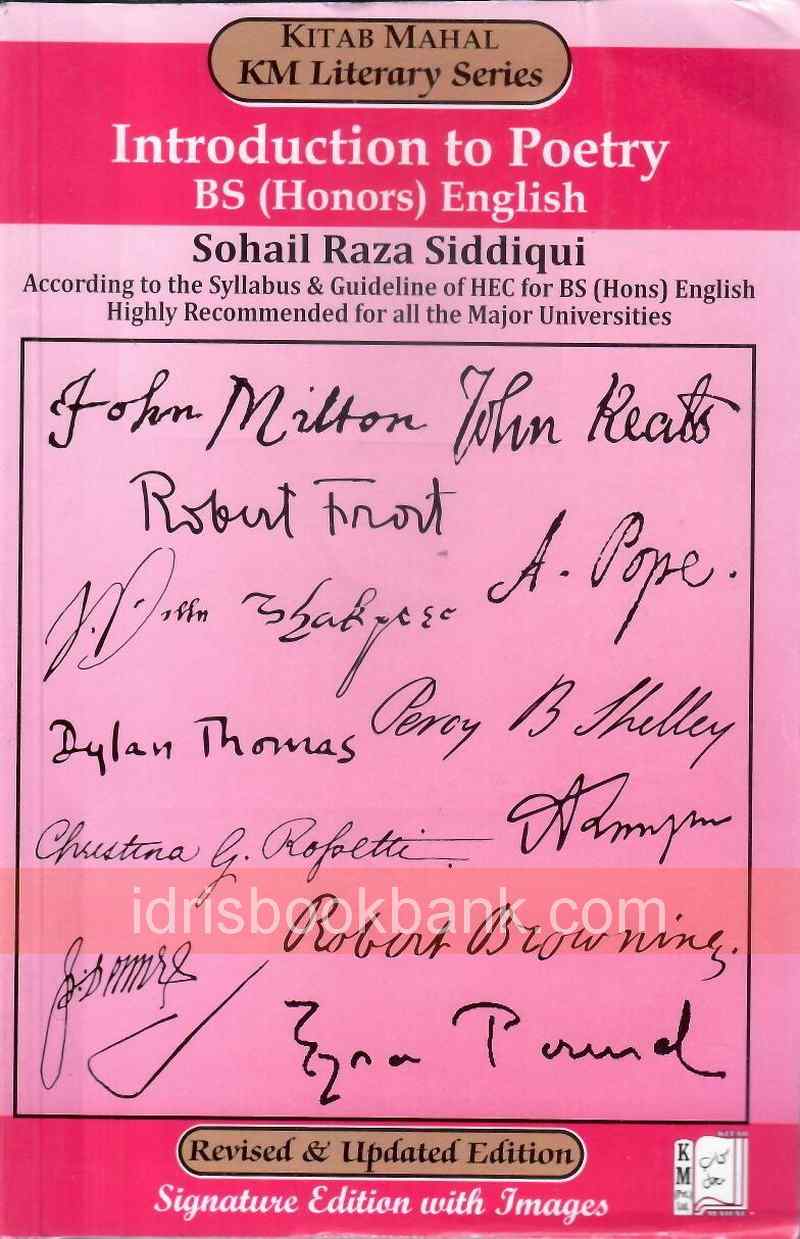 KITAB MAHAL
KM Literary Series
Introduction to Poetry
BS (Honors) English
Sohail Raza Siddiqui
According to the Syllabus & Guideline of HEC for BS (Hons) English
Highly Recommended for all the Major Universities
John Milton John Keats
Robert Frost
A. Pope.
Shakspere
Percy B Shelley
Dylan Thomas
Christina G. Rossetti
idrisbookbank.com
Robert Browning.
Ezra Pound
Revised & Updated Edition
K
M
Signature Edition with Images